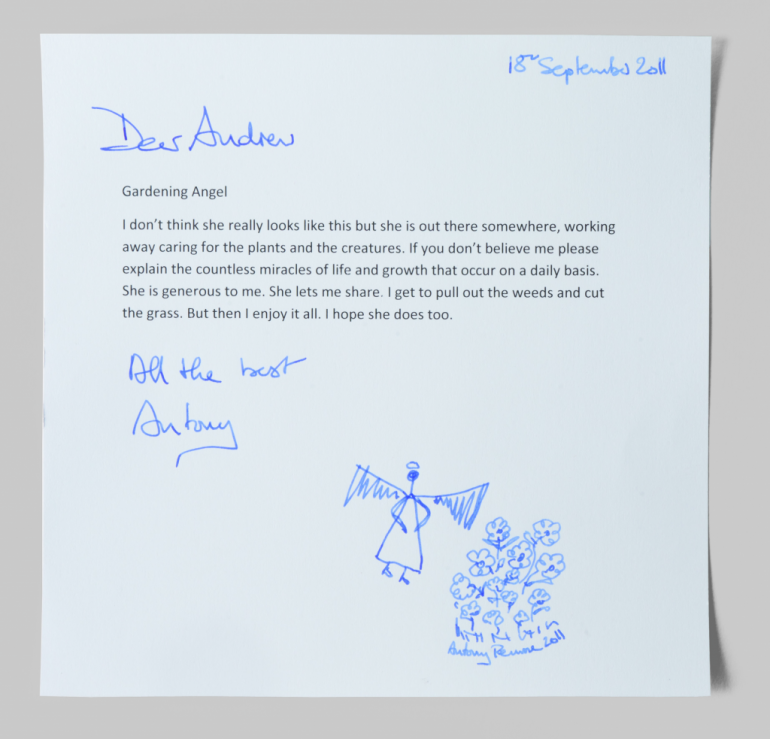 18th September 2011
Dear Andrew
Gardening Angel
I don’t think she really looks like this but she is out there somewhere, working
away caring for the plants and the creatures. If you don’t believe me please
explain the countless miracles of life and growth that occur on a daily basis.
She is generous to me. She lets me share. I get to pull out the weeds and cut
the grass. But then I enjoy it all. I hope she does too.
All the best
Antony
Antony 2011